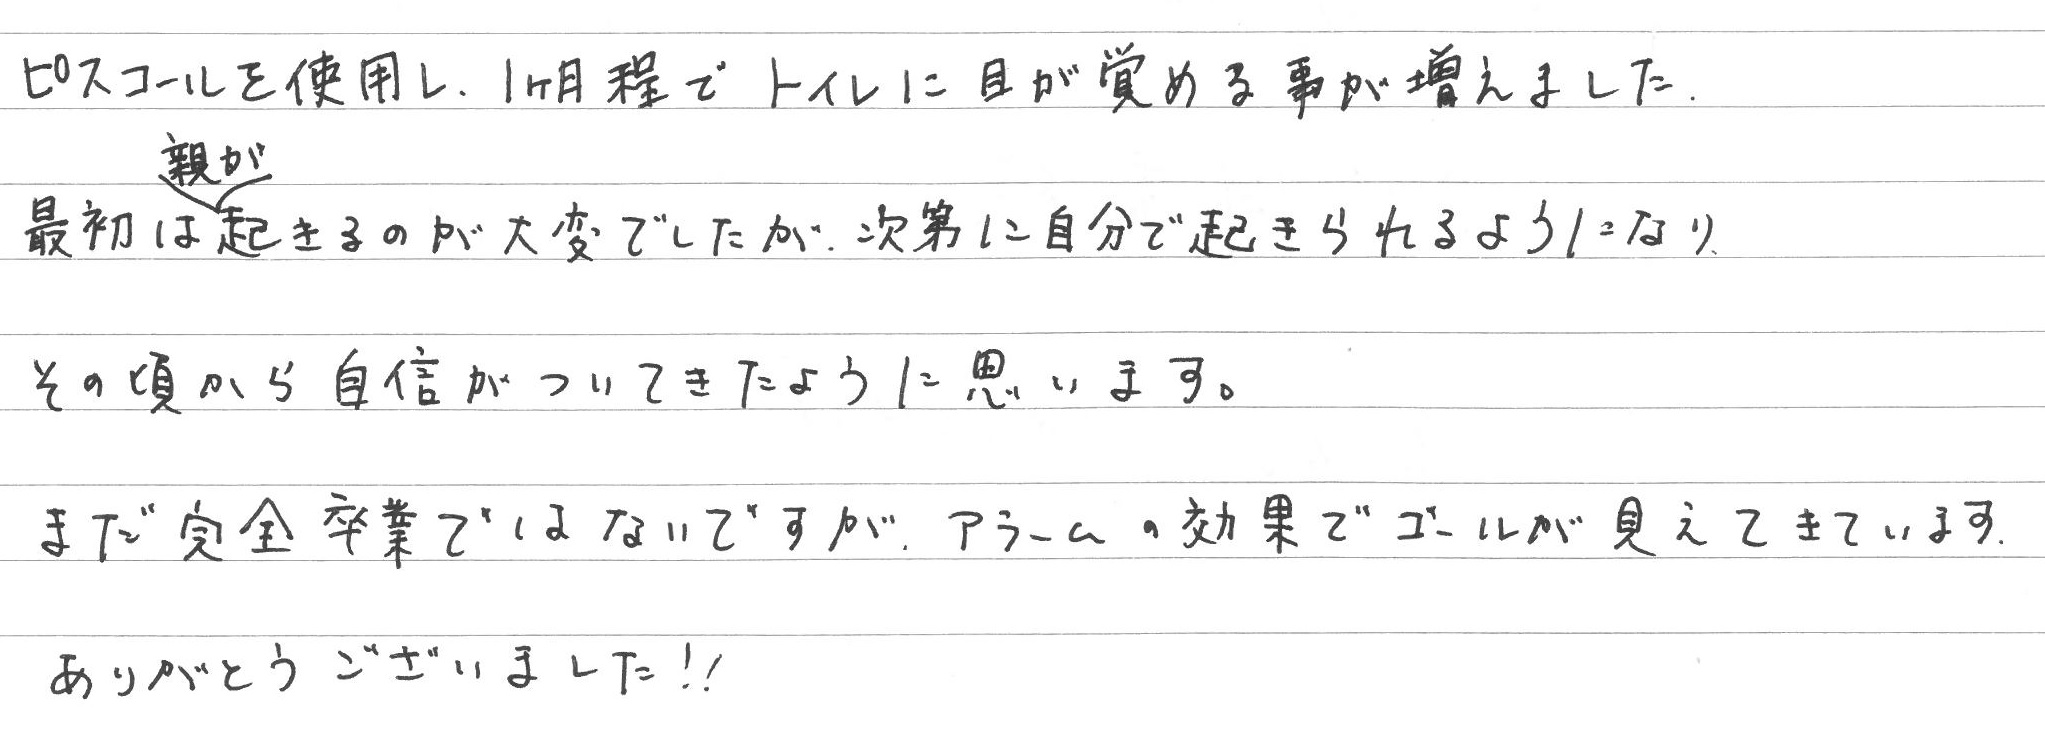 ピスコールを使用し、1ヶ月程でトイレに目が覚める事が増えました.
親が
最初は起きるのが大変でしたが、次第に自分で起きられるようになり、
その頃から自信がついてきたように思います。
まだ完全卒業ではないですが、アラームの効果でゴールが見えてきています.
ありがとうございました!!